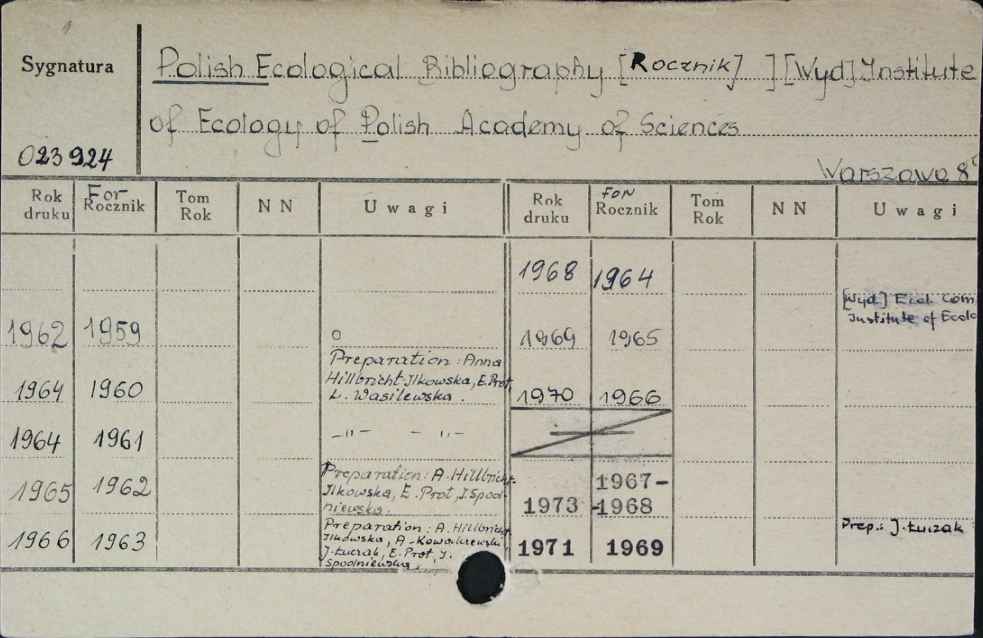 1
Sygnatura
Polish Ecological Bibliography [Rocznik] ] [Wyd] Institute
of Ecology of Polish Academy of Sciences
023924
Warszawa 8°
Rok druku For Rocznik Tom Rok NN Uwagi Rok druku For Rocznik Tom Rok NN Uwagi
1968 1964
[Wyd] Ecol. Com
Institute of Ecolo
1962 1959 o 1969 1965
Preparation: Anna
Hillbricht-Ilkowska, E. Prot,
1964 1960 L. Wasilewska. 1970 1966
1964 1961 -"- -"-
Preparation: A. Hillbricht-
1965 1962 Ilkowska, E. Prot, I. Spod- 1967-
niewska. 1973 -1968
Preparation: A. Hillbricht- Prep.: J. Łuczak
Ilkowska, A. Kowalczewski
1966 1963 J. Łuczak, E. Prot, I. 1971 1969
Spodniewska.